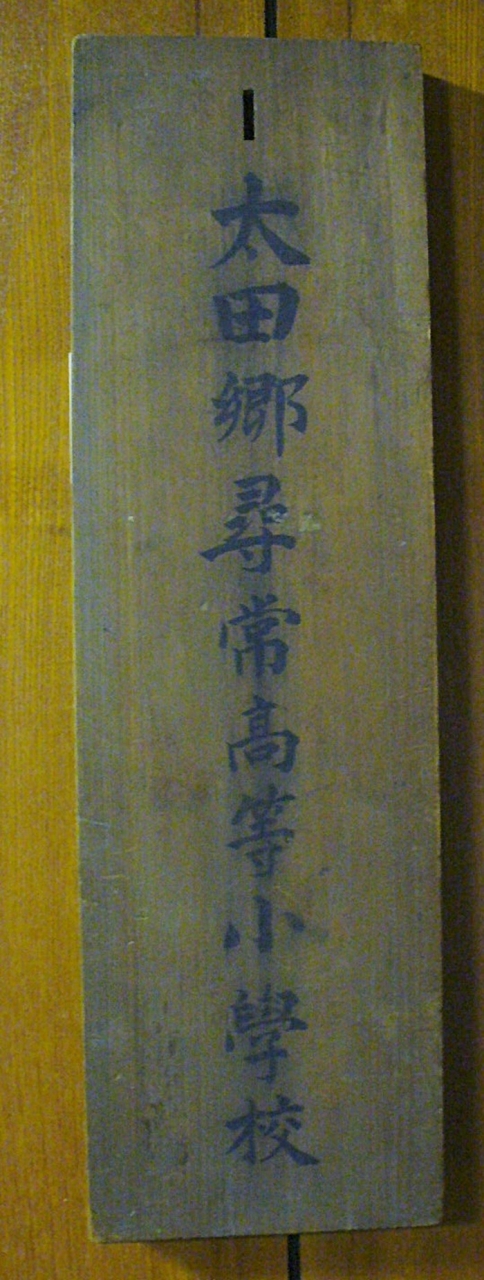 太田郷尋常髙等小學校